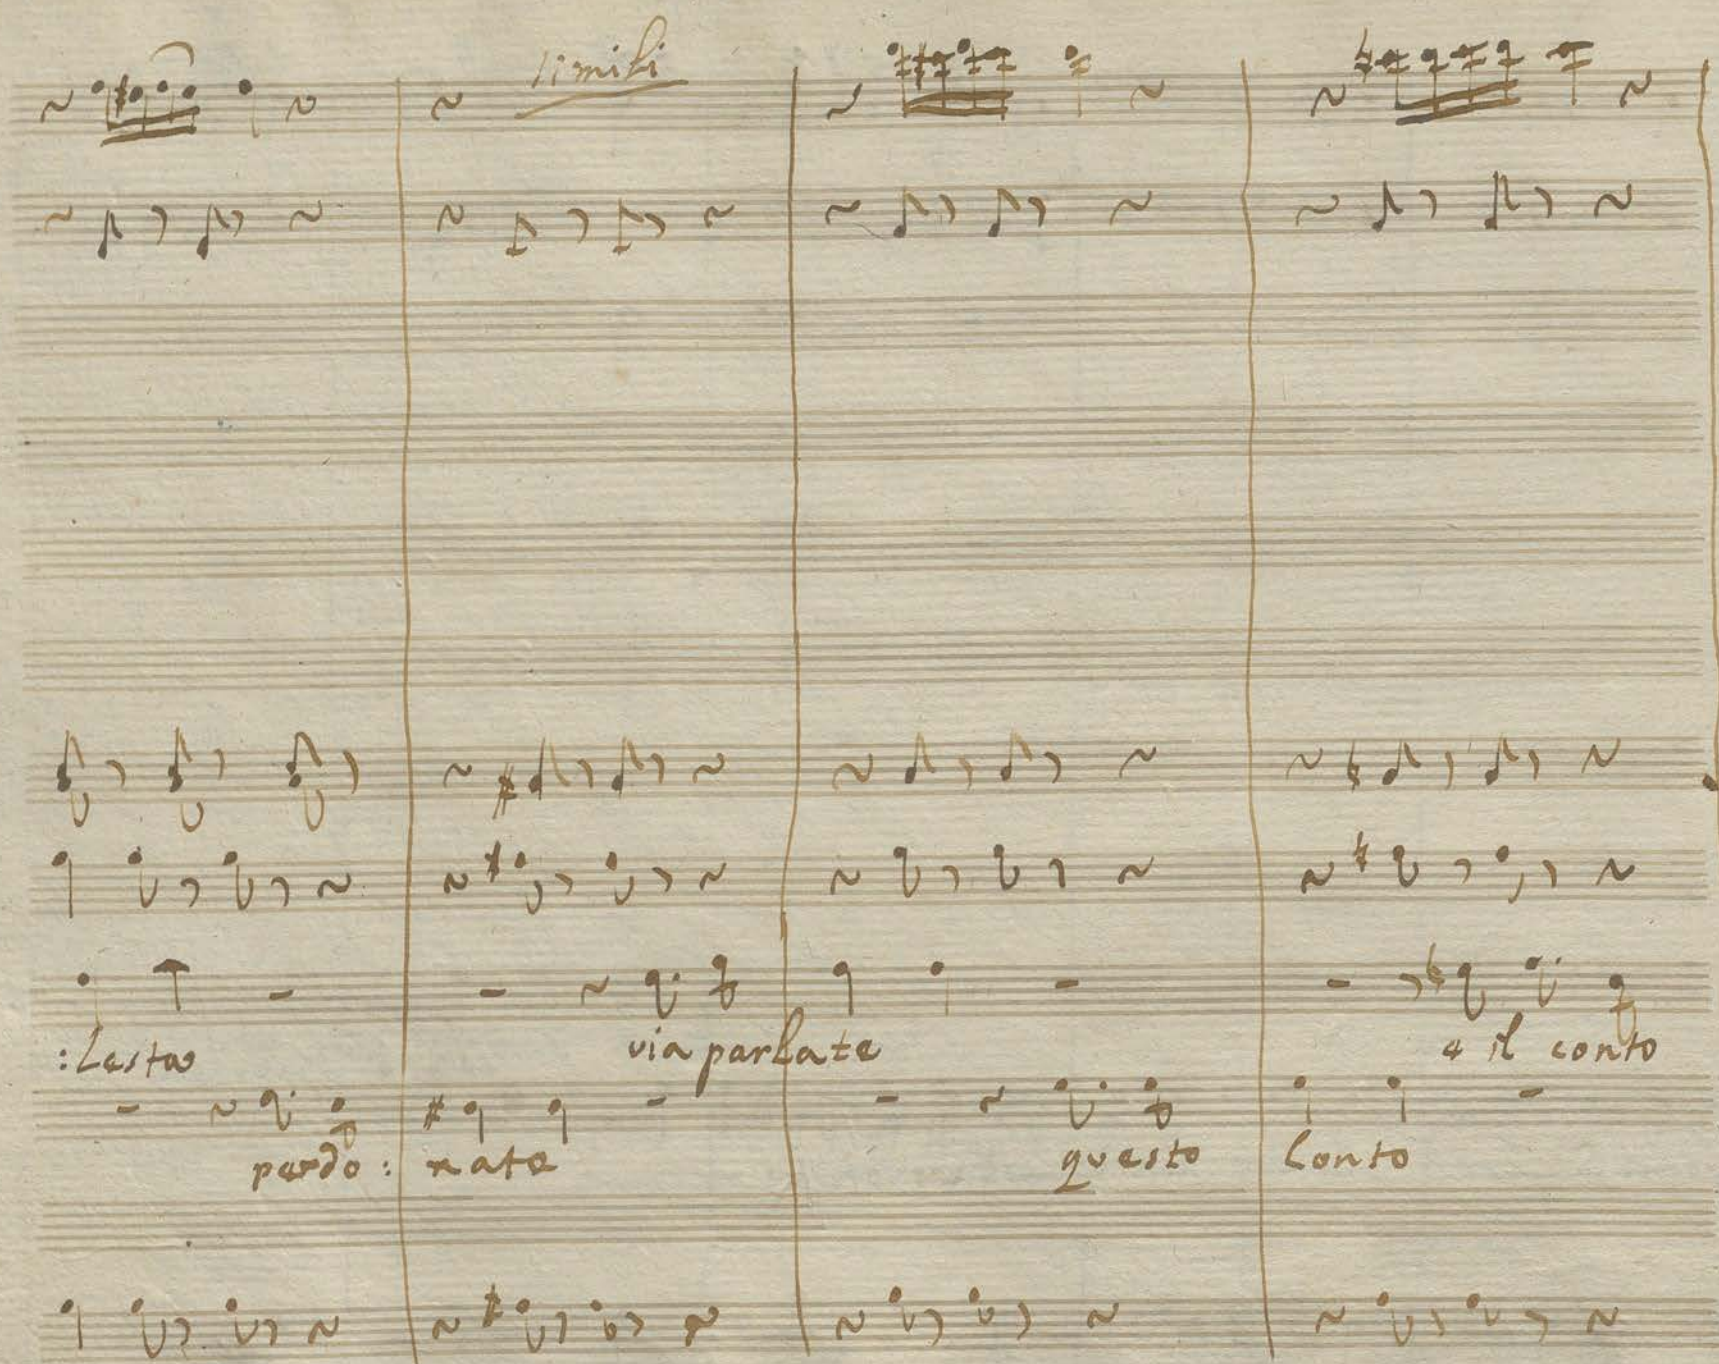 simili
:lesta via parlate e il conto
perdo: nate questo Conto